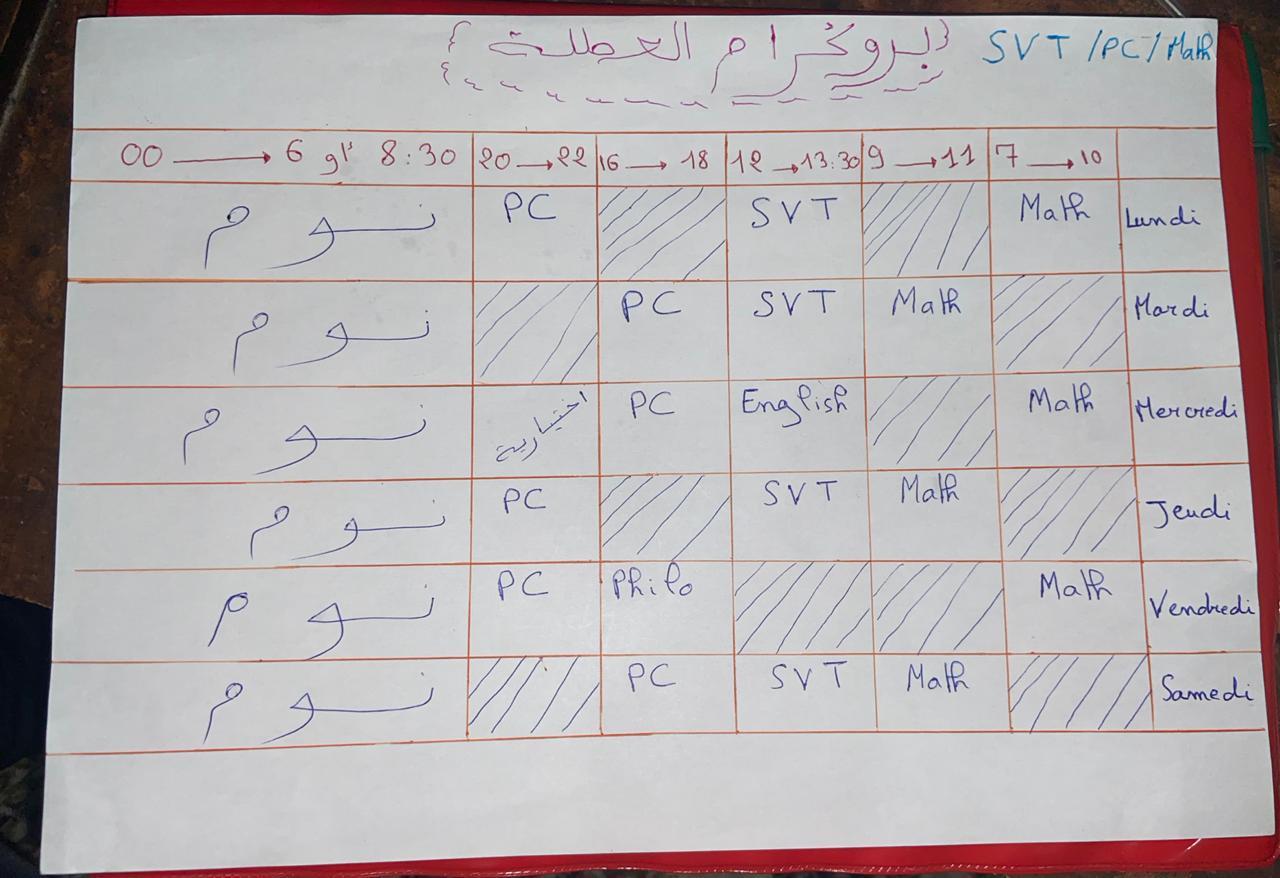 {بروگرام العطلة} SVT / PC / Math
00 → 6 أو 8:30 20 → 22 16 → 18 12 → 13:30 9 → 11 7 → 10
نوم PC SVT Math Lundi
نوم PC SVT Math Mardi
نوم اختيارية PC English Math Mercredi
نوم PC SVT Math Jeudi
نوم PC Philo Math Vendredi
نوم PC SVT Math Samedi